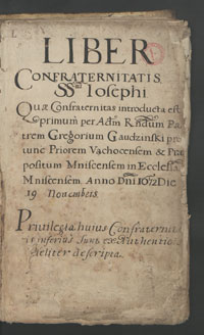 LIBER
CONFRATERNITATIS
SSmi Iosephi
Quæ Confraternitas introducta est
primum per Adm Rndum Pa
trem Gregorium Gaudzinski pro
tunc Priorem Vachocensem & Præ
positum Mniscensem in Ecclesia
Mniscensem Anno Dni 1672 Die
19 Nouembris
Priuilegia huius Confraternita
inferius sunt ex Authentico
descripta.